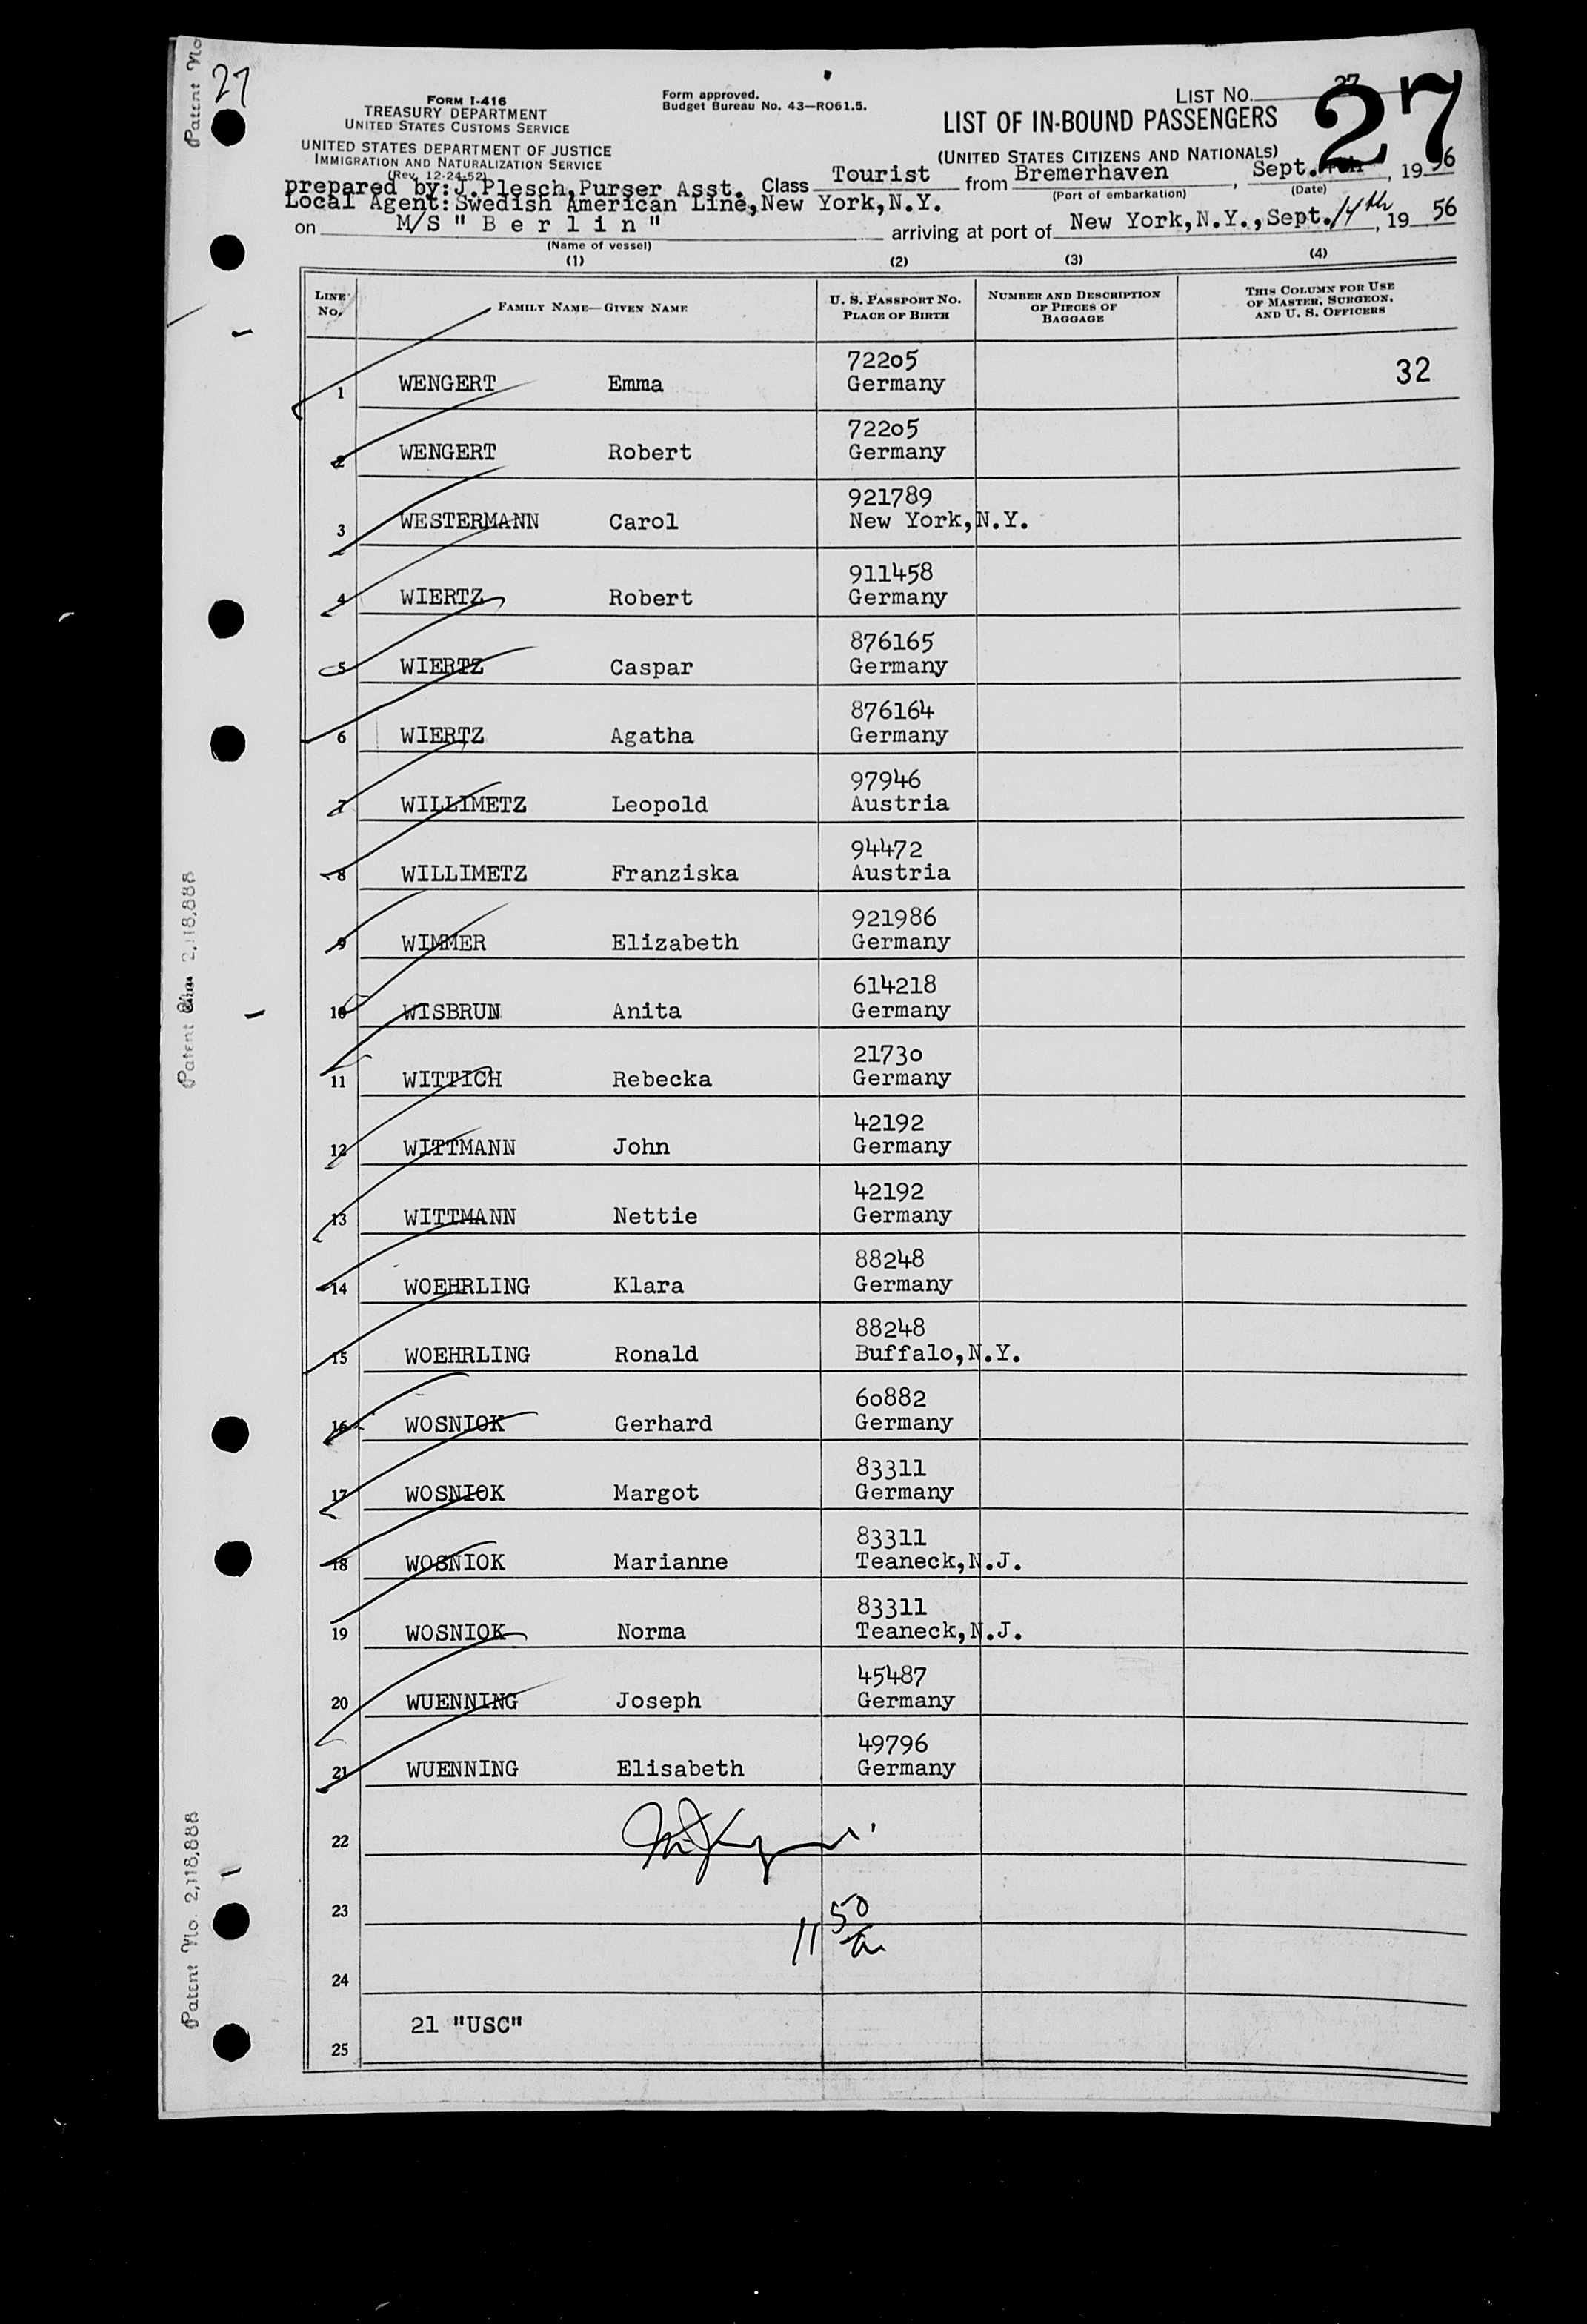 Patent No
27
FORM I-416
TREASURY DEPARTMENT
UNITED STATES CUSTOMS SERVICE
UNITED STATES DEPARTMENT OF JUSTICE
IMMIGRATION AND NATURALIZATION SERVICE
(Rev. 12-24-52)
Form approved.
Budget Bureau No. 43—RO61.5.
LIST NO. 27
27
LIST OF IN-BOUND PASSENGERS
(UNITED STATES CITIZENS AND NATIONALS)
prepared by: J.Plesch, Purser Asst. Class Tourist from Bremerhaven, Sept. , 1956
(Port of embarkation) (Date)
Local Agent: Swedish American Line, New York, N.Y.
on M/S " B e r l i n " arriving at port of New York, N.Y., Sept. 14th, 1956
(Name of vessel)
(1) (2) (3) (4)
LINE NO. FAMILY NAME—GIVEN NAME U. S. PASSPORT NO. PLACE OF BIRTH NUMBER AND DESCRIPTION OF PIECES OF BAGGAGE THIS COLUMN FOR USE OF MASTER, SURGEON, AND U. S. OFFICERS
72205 32
1 WENGERT Emma Germany
72205
2 WENGERT Robert Germany
921789
3 WESTERMANN Carol New York, N.Y.
911458
4 WIERTZ Robert Germany
876165
5 WIERTZ Caspar Germany
876164
6 WIERTZ Agatha Germany
97946
7 WILLIMETZ Leopold Austria
94472
8 WILLIMETZ Franziska Austria
921986
9 WIMMER Elizabeth Germany
614218
10 WISBRUN Anita Germany
21730
11 WITTICH Rebecka Germany
42192
12 WITTMANN John Germany
42192
13 WITTMANN Nettie Germany
88248
14 WOEHRLING Klara Germany
88248
15 WOEHRLING Ronald Buffalo, N.Y.
60882
16 WOSNIOK Gerhard Germany
83311
17 WOSNIOK Margot Germany
83311
18 WOSNIOK Marianne Teaneck, N.J.
83311
19 WOSNIOK Norma Teaneck, N.J.
45487
20 WUENNING Joseph Germany
49796
21 WUENNING Elisabeth Germany
22
23
11 50
24
21 "USC"
25
Patent 2,118,888
Patent No. 2,118,888